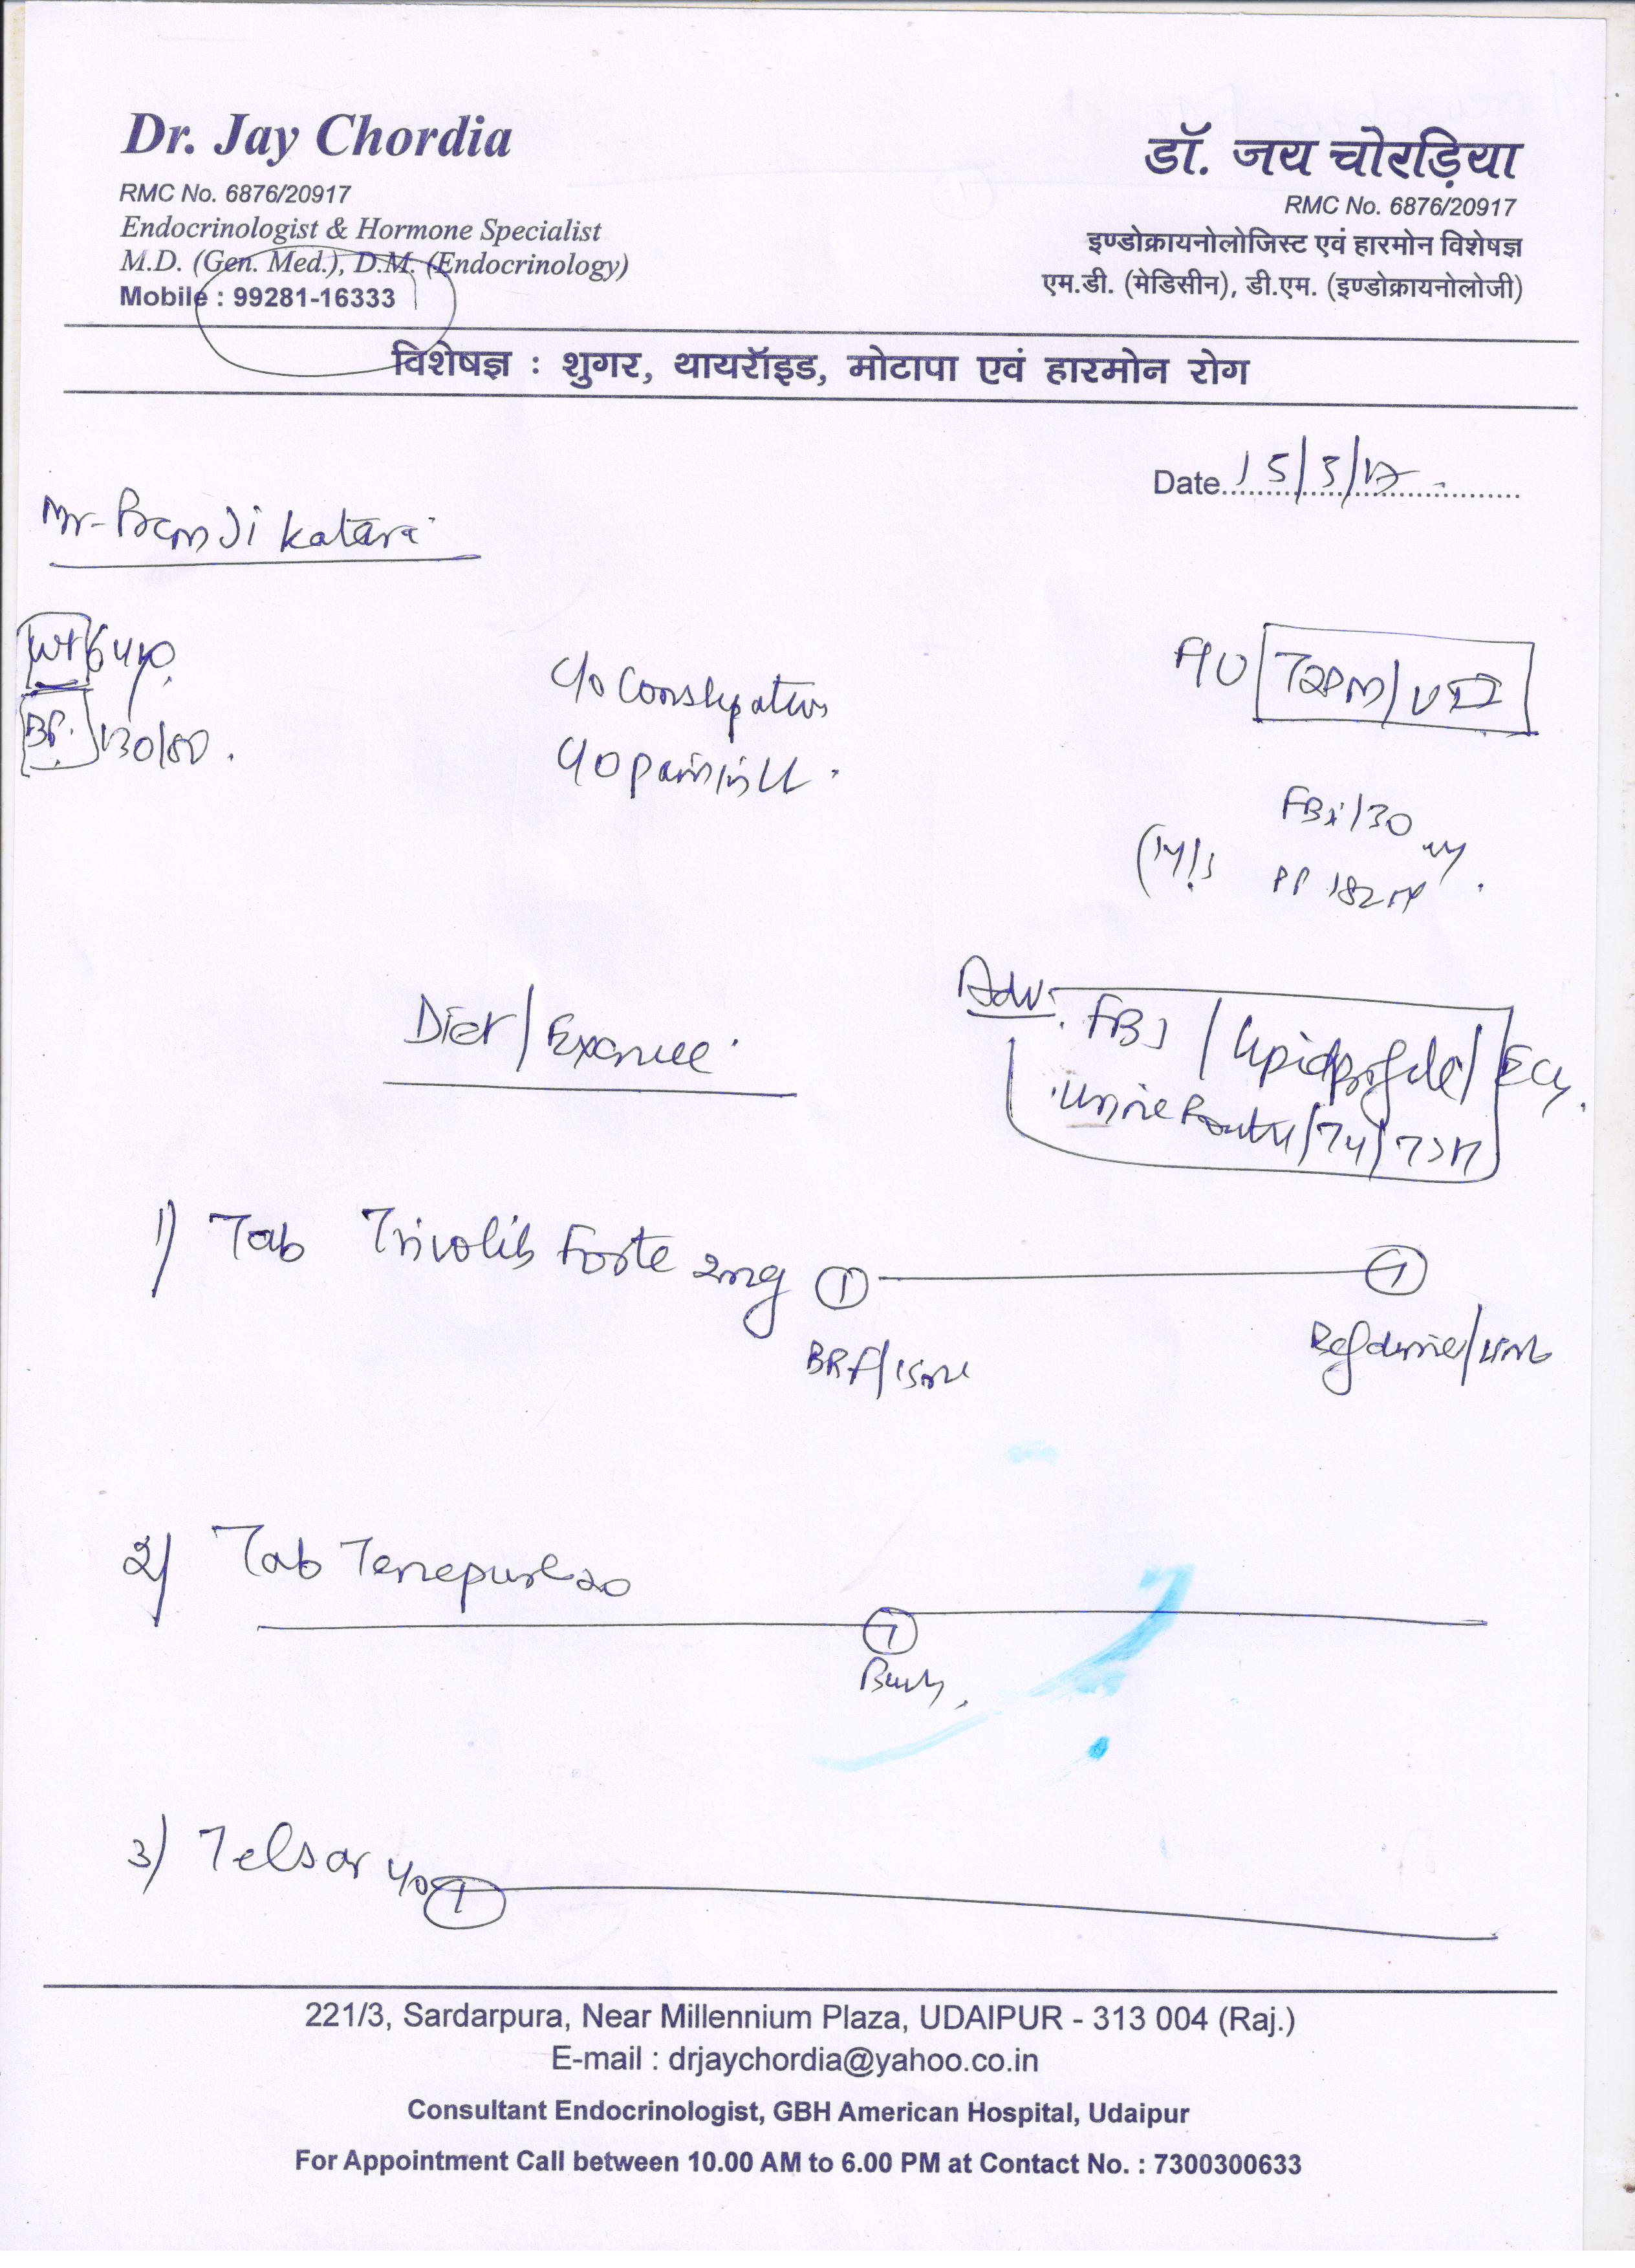 Dr. Jay Chordia
RMC No. 6876/20917
Endocrinologist & Hormone Specialist
M.D. (Gen. Med.), D.M. (Endocrinology)
Mobile : 99281-16333
डॉ. जय चोरड़िया
RMC No. 6876/20917
इण्डोक्रायनोलोजिस्ट एवं हारमोन विशेषज्ञ
एम.डी. (मेडिसीन), डी.एम. (इण्डोक्रायनोलोजी)
विशेषज्ञ : शुगर, थायरॉइड, मोटापा एवं हारमोन रोग
Date 15/3/17
Mr. Ji Katara
Wt 64
BP. 130/80.
C/o Constipation
C/o pain in LL.
F/U T2DM/
FBS 130
PP 182
Diet/Exercise
Adv. FBS / lipid profile/ ECG.
Urine Routine/T4/TSH
1) Tab Trivolib Forte 2mg 1 1
BRF/15min
Bef dinner/15min
2) Tab Tenepure 20
1
3) Telsar 40 1
221/3, Sardarpura, Near Millennium Plaza, UDAIPUR - 313 004 (Raj.)
E-mail : drjaychordia@yahoo.co.in
Consultant Endocrinologist, GBH American Hospital, Udaipur
For Appointment Call between 10.00 AM to 6.00 PM at Contact No. : 7300300633